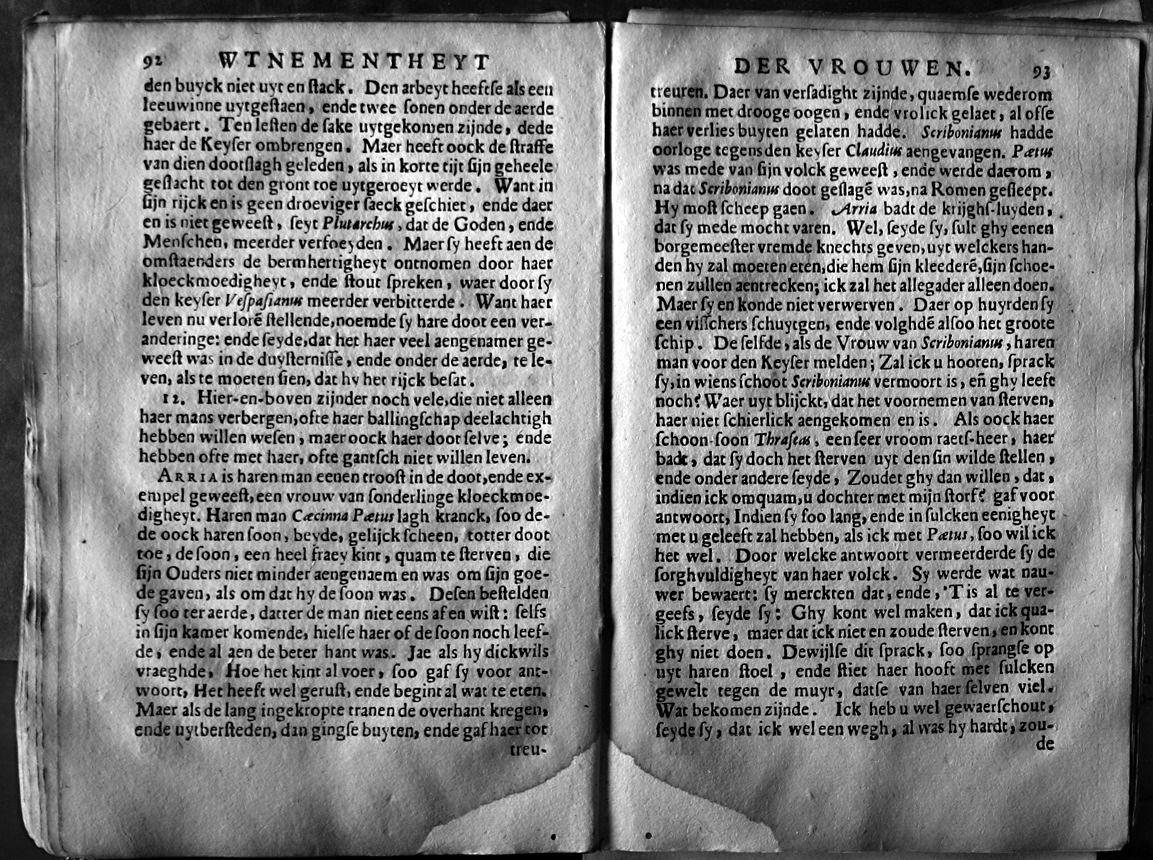 92 WTNEMENTHEYT
den buyck niet uyt en ſtack. Den arbeyt heeftſe als een
leeuwinne uytgeſtaen, ende twee ſonen onder de aerde
gebaert. Ten leſten de ſake uytgekomen zijnde, dede
haer de Keyſer ombrengen. Maer heeft oock de ſtraffe
van dien dootſlagh geleden, als in korte tijt ſijn geheele
geſlacht tot den gront toe uytgeroeyt werde. Want in
ſijn rijck en is geen droeviger ſaeck geſchiet, ende daer
en is niet geweeſt, ſeyt Plutarchus, dat de Goden, ende
Menſchen, meerder verfoeyden. Maer ſy heeft aen de
omſtaenders de bermhertigheyt ontnomen door haer
kloeckmoedigheyt, ende ſtout ſpreken, waer door ſy
den keyſer Veſpaſianus meerder verbitterde. Want haer
leven nu verlorē ſtellende, noemde ſy hare doot een ver-
anderinge: ende ſeyde, dat het haer veel aengenamer ge-
weeſt was in de duyſterniſſe, ende onder de aerde, te le-
ven, als te moeten ſien, dat hy het rijck beſat.
12. Hier-en-boven zijnder noch vele, die niet alleen
haer mans verbergen, ofte haer ballingſchap deelachtigh
hebben willen weſen, maer oock haer doot ſelve; ende
hebben ofte met haer, ofte gantſch niet willen leven.
ARRIA is haren man eenen trooſt in de doot, ende ex-
empel geweeſt, een vrouw van ſonderlinge kloeckmoe-
digheyt. Haren man Cæcinna Pætus lagh kranck, ſoo de-
de oock haren ſoon, beyde, gelijck ſcheen, totter doot
toe, de ſoon, een heel fraey kint, quam te ſterven, die
ſijn Ouders niet minder aengenaem en was om ſijn goe-
de gaven, als om dat hy de ſoon was. Deſen beſtelden
ſy ſoo ter aerde, datter de man niet eens af en wiſt: ſelfs
in ſijn kamer komende, hielſe haer of de ſoon noch leef-
de, ende al aen de beter hant was. Jae als hy dickwils
vraeghde, Hoe het kint al voer, ſoo gaf ſy voor ant-
woort, Het heeft wel geruſt, ende begint al wat te eten.
Maer als de lang ingekropte tranen de overhant kregen,
ende uytberſteden, dan gingſe buyten, ende gaf haer tot
treu-
DER VROUWEN. 93
treuren. Daer van verſadight zijnde, quaemſe wederom
binnen met drooge oogen, ende vrolick gelaet, al offe
haer verlies buyten gelaten hadde. Scribonianus hadde
oorloge tegens den keyſer Claudius aengevangen. Pætus
was mede van ſijn volck geweeſt, ende werde daerom,
na dat Scribonianus doot geſlagē was, na Romen geſleept.
Hy moſt ſcheep gaen. Arria badt de krijghſ-luyden,
dat ſy mede mocht varen. Wel, ſeyde ſy, ſult ghy eenen
borgemeeſter vremde knechts geven, uyt welckers han-
den hy zal moeten eten, die hem ſijn kleederē, ſijn ſchoe-
nen zullen aentrecken; ick zal het allegader alleen doen.
Maer ſy en konde niet verwerven. Daer op huyrden ſy
een viſſchers ſchuytgen, ende volghdē alſoo het groote
ſchip. De ſelfde, als de Vrouw van Scribonianus, haren
man voor den Keyſer melden; Zal ick u hooren, ſprack
ſy, in wiens ſchoot Scribonianus vermoort is, eñ ghy leeft
noch? Waer uyt blijckt, dat het voornemen van ſterven,
haer niet ſchierlick aengekomen en is. Als oock haer
ſchoon-ſoon Thraſeas, een ſeer vroom raetſ-heer, haer
badt, dat ſy doch het ſterven uyt den ſin wilde ſtellen,
ende onder andere ſeyde, Zoudet ghy dan willen, dat,
indien ick omquam, u dochter met mijn ſtorf? gaf voor
antwoort, Indien ſy ſoo lang, ende in ſulcken eenigheyt
met u geleeft zal hebben, als ick met Pætus, ſoo wil ick
het wel. Door welcke antwoort vermeerderde ſy de
ſorghvuldigheyt van haer volck. Sy werde wat nau-
wer bewaert: ſy merckten dat, ende, 'T is al te ver-
geefs, ſeyde ſy: Ghy kont wel maken, dat ick qua-
lick ſterve, maer dat ick niet en zoude ſterven, en kont
ghy niet doen. Dewijlſe dit ſprack, ſoo ſprangſe op
uyt haren ſtoel, ende ſtiet haer hooft met ſulcken
gewelt tegen de muyr, datſe van haer ſelven viel.
Wat bekomen zijnde. Ick heb u wel gewaerſchout,
ſeyde ſy, dat ick wel een wegh, al was hy hardt, zou-
de